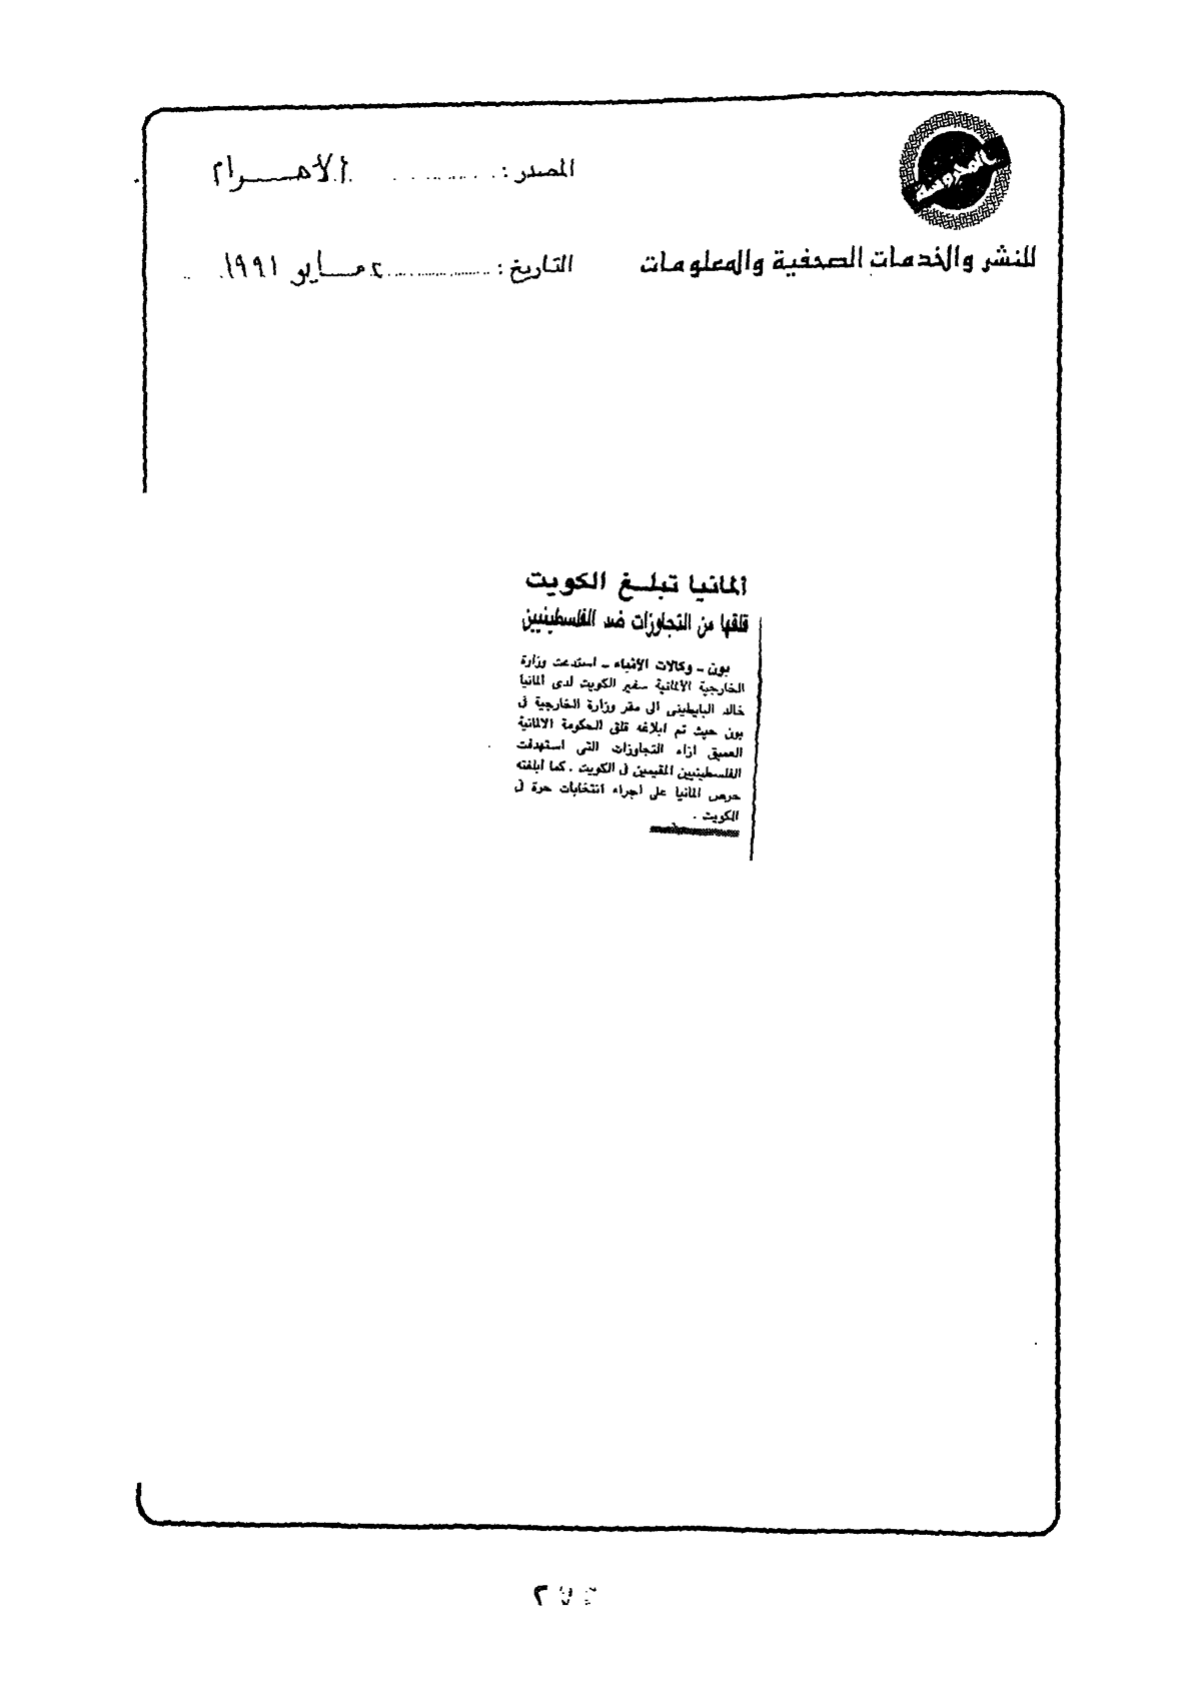 المحروسة
المصدر : الأهرام
للنشر والخدمات الصحفية والمعلومات
التاريخ : ٢ مايو ١٩٩١
ألمانيا تبلغ الكويت
قلقها من التجاوزات ضد الفلسطينيين
بون - وكالات الأنباء - استدعت وزارة
الخارجية الألمانية سفير الكويت لدى ألمانيا
خالد البابطينى الى مقر وزارة الخارجية فى
بون حيث تم ابلاغه قلق الحكومة الالمانية
العميق ازاء التجاوزات التى استهدفت
الفلسطينيين المقيمين فى الكويت . كما أبلغته
حرص المانيا على أجراء انتخابات حرة فى
الكويت .